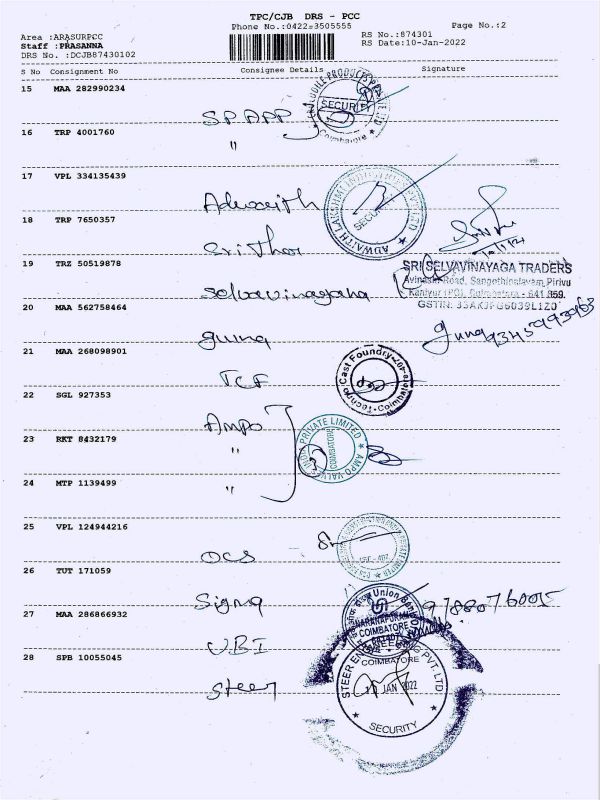 TPC/CJB DRS - PCC
Phone No.:0422-3505555 Page No.:2
Area :ARASURPCC RS No.:874301
Staff :PRASANNA RS Date:10-Jan-2022
DRS No. :DCJB87430102
S No Consignment No Consignee Details Signature
15 MAA 282990234
SPAPP SECURITY Coimbatore
16 TRP 4001760
"
17 VPL 334135439
Adwaith ADWAITH LAKSHMI INDUSTRIES PVT LTD SECURITY
18 TRP 7650357
Srithar
19 TRZ 50519878
SRI SELVAVINAYAGA TRADERS
Avinashi Road, Sangothipalayam Pirivu
Kaniyur (PO), Coimbatore - 641 659.
GSTIN:
Selvavinayaga
20 MAA 562758464
guna guna
21 MAA 268098901
TCF Techno Cast Foundry Coimbatore
22 SGL 927353
Ampo
23 RKT 8432179
" AMPO VALVES INDIA PRIVATE LIMITED COIMBATORE
24 MTP 1139499
"
25 VPL 124944216
OCS
26 TUT 171059
Sigma 9788076005
27 MAA 286866932
UBI Union Bank COIMBATORE
28 SPB 10055045
Steer STEER ENGINEERING PVT. LTD COIMBATORE
10 JAN 2022
SECURITY